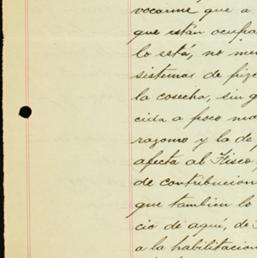 vocarme que a
que están ocupa
lo está, no me
sistemas de
la cosecha, sin g
cida a poco ma
razomo y la de p
afecta al Fisco,
de contribucion
que tambien lo
cio de aquí, de
a la habilitacion